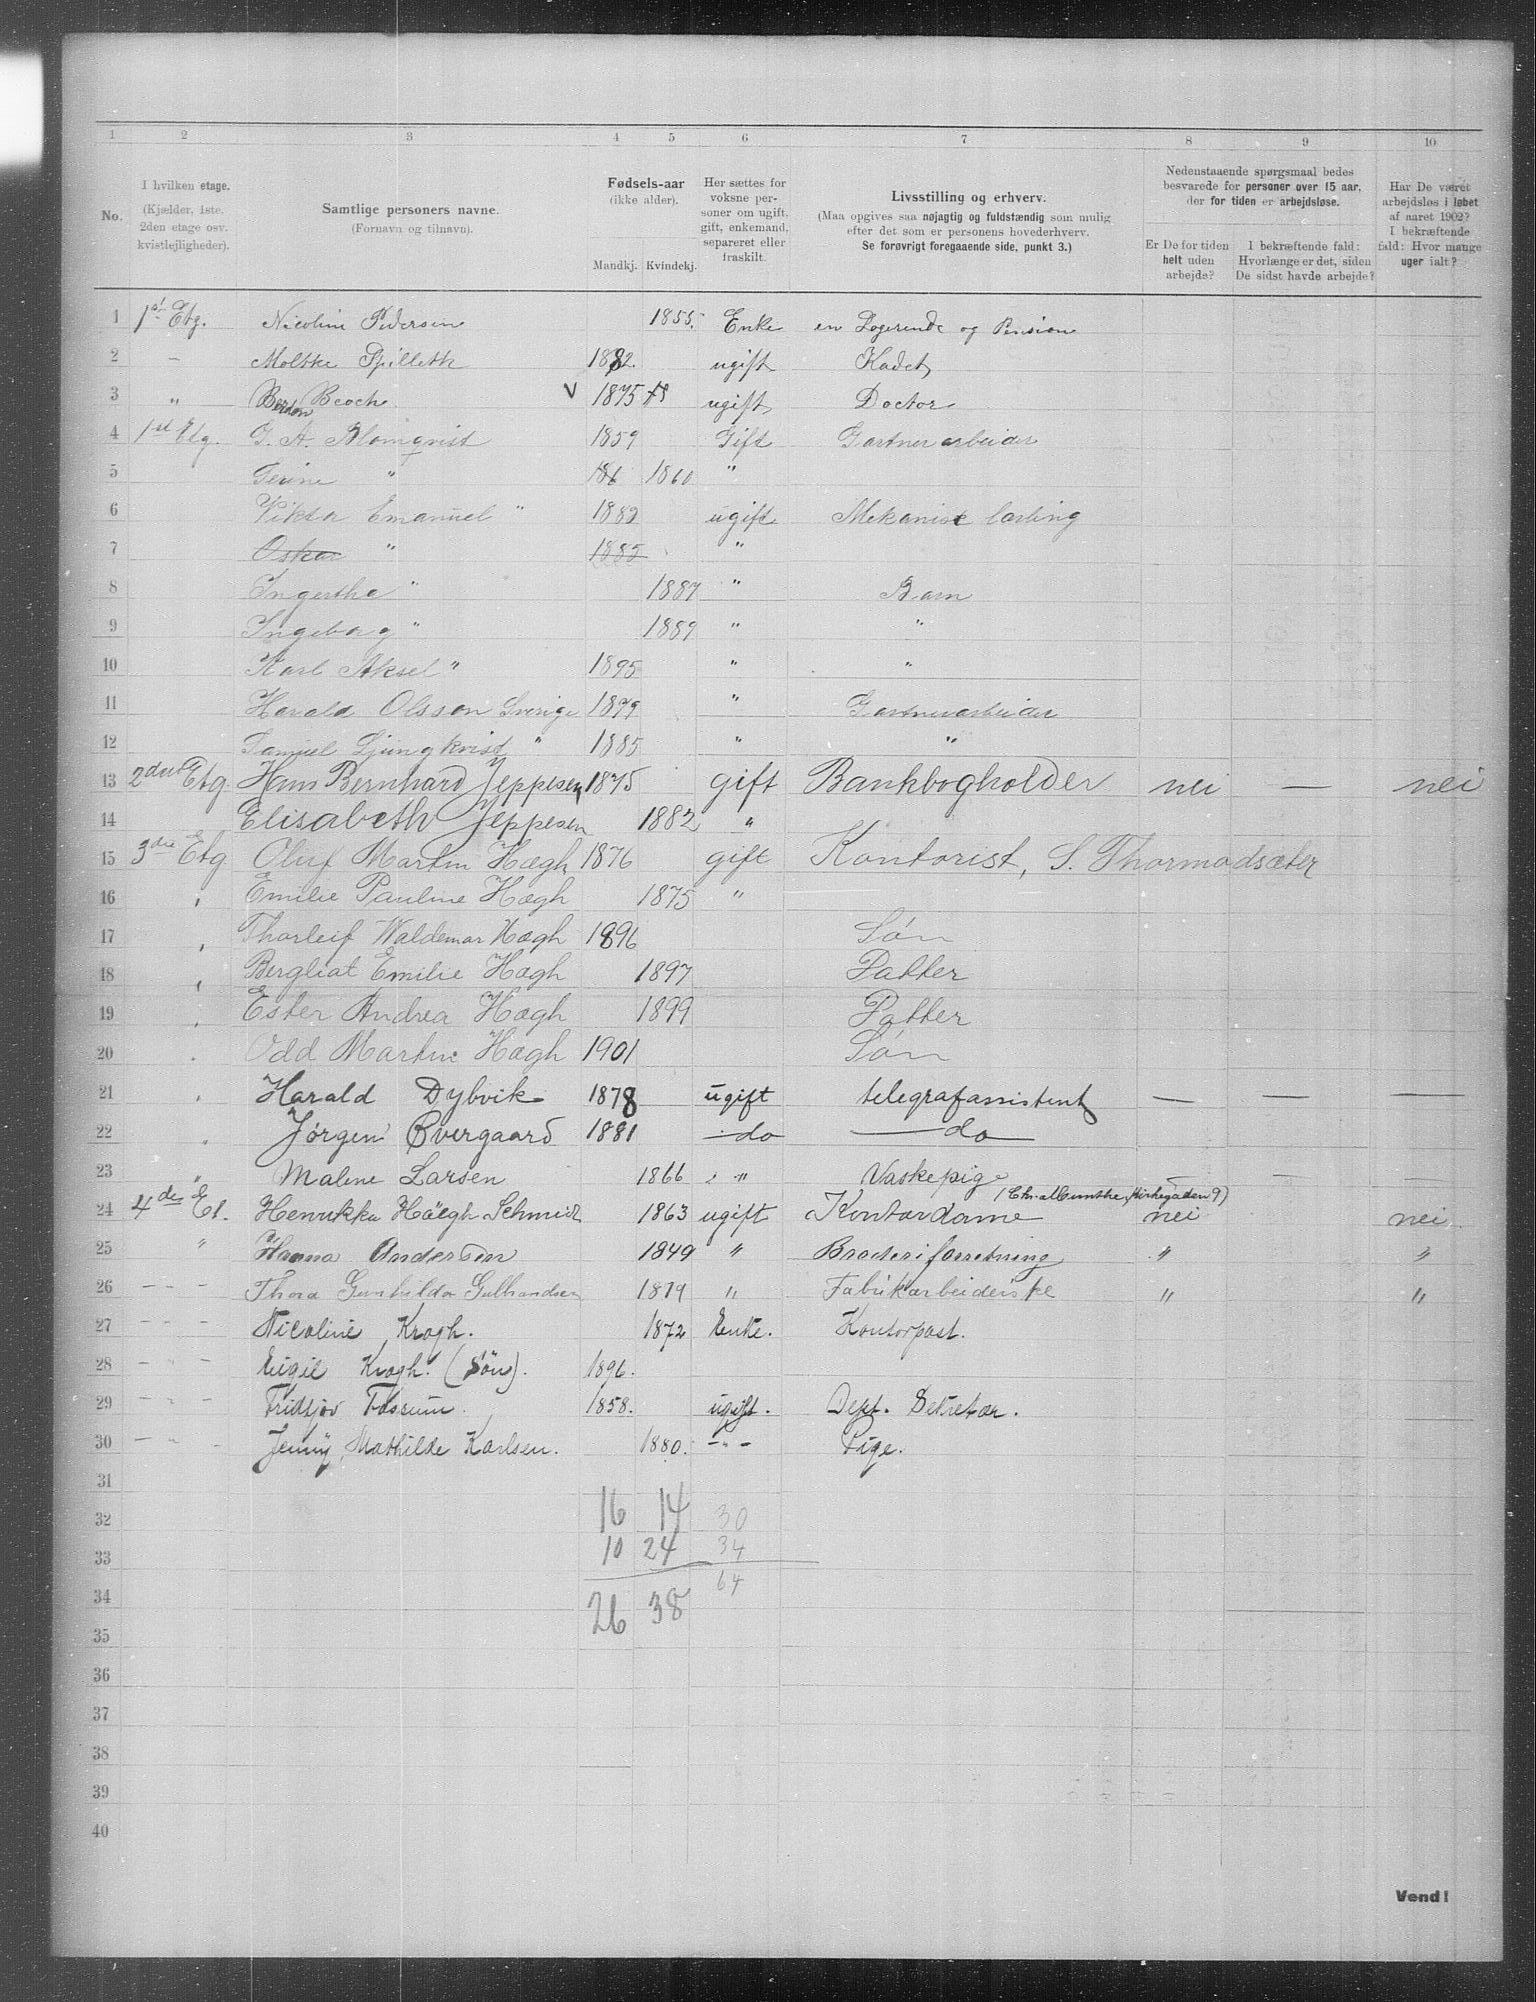 1 2 3 4 5 6 7 8 9 10
No.
I hvilken etage.
(Kjælder, 1ste.
2den etage osv.
kvistlejligheder).
Samtlige personers navne.
(Fornavn og tilnavn).
Fødsels-aar
(ikke alder).
Mandkj. Kvindekj.
Her sættes for
voksne per-
soner om ugift,
gift, enkemand,
separeret eller
fraskilt.
Livsstilling og erhverv.
(Maa opgives saa nøjagtig og fuldstændig som mulig
efter det som er personens hovederhverv.
Se forøvrigt foregaaende side, punkt 3.)
Nedenstaaende spørgsmaal bedes
besvarede for personer over 15 aar,
der for tiden er arbejdsløse.
Er De for tiden
helt uden
arbejde?
I bekræftende fald:
Hvorlænge er det, siden
De sidst havde arbejde?
Har De været
arbejdsløs i løbet
af aaret 1902?
I bekræftende
fald: Hvor mange
uger ialt?
1 1st Etg. Nicoline Pedersen 1855. Enke en Logerende og Pension
2 – Moltke 1882. ugift Kadet
3 " V 1875 ugift Doctor
4 1st Etg. G. A. Blomqvist 1859 Gift Gartner arbeider
5 " 1860 "
6 Viktor Emanuel " 1882 ugift Mekanisk lærling
7 Oskar " 1885 "
8 Ingertha " 1887 " Barn
9 Ingeborg " 1889 " "
10 Karl Aksel " 1895 " "
11 Harald Olsson Sverige 1879 " Gartnerarbeider
12 Samuel Ljungkvist " 1885 " "
13 2den Etg. Hans Bernhard Jeppesen 1875 gift Bankbogholder nei — nei
14 Elisabeth Jeppesen 1882 "
15 3die Etg Oluf Martin Høegh 1876 gift Kontorist, S. Thormodsæter
16 " Emilie Pauline Høegh 1875 "
17 " Thorleif Waldemar Høegh 1896 Søn
18 " Bergliot Emilie Høegh 1897 Datter
19 " Ester Andrea Høegh 1899 Datter
20 " Odd Martin Høegh 1901 Søn
21 " Harald Dybvik 1878 ugift telegrafassistent — — —
22 " Jørgen Øvergaard 1881 — do — do —
23 " Malene Larsen 1866 " Vaskepige — —
(Chr. al Munthe, Kirkegaden 9)
24 4de Et. Henrikka Höegh Schmidt 1863 ugift Kontordame nei nei
25 " Hanna Andersen 1849 " Broderiforretning " "
26 – – – Thora Gunhilda Gulbrandsen 1879 " Fabrikarbeiderske " "
27 – – – Nicoline Krogh. 1872 Enke. Kontorpost.
28 – " – Eigil Krogh. (Søn). 1896.
29 – " – Fridtjov Fossum. 1858. ugift. Dept. Sekretær.
30 – " – Jenny Mathilde Karlsen. 1880. – " – Pige.
31
32 16 14 30
33 10 24 34
34 26 38 64
35
36
37
38
39
40
Vend!